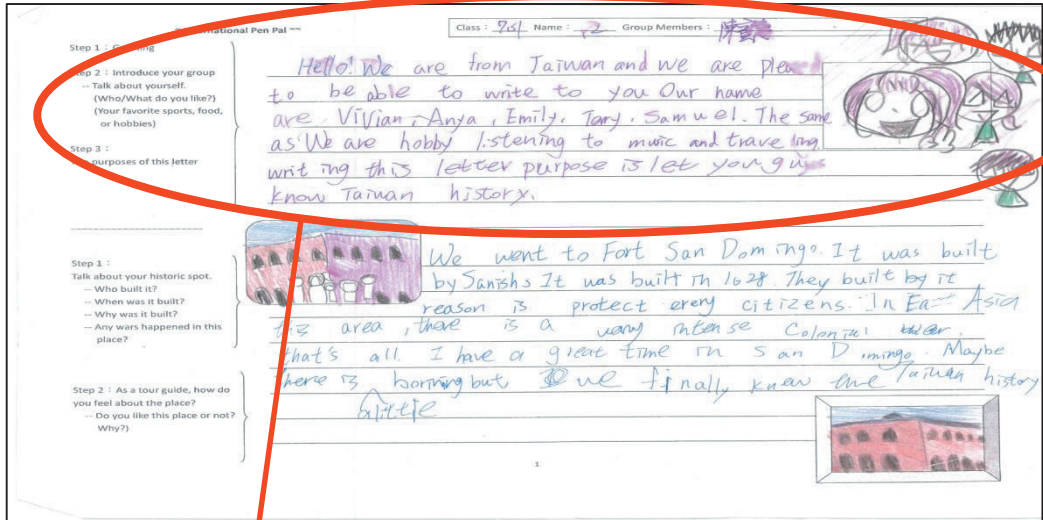 International Pen Pal ~~
Class : 701 Name : Group Members :
Step 1 :
Step 2 : Introduce your group
-- Talk about yourself.
(Who/What do you like?)
(Your favorite sports, food,
or hobbies)
Step 3 :
purposes of this letter
Hello! We are from Taiwan and we are
to be able to write to you Our name
are ViVian, Anya, Emily, Tony, Samuel. The same
as We are hobby listening to music and trave ling
writ ing this letter purpose is let you guys
know Taiwan history.
Step 1 :
Talk about your historic spot.
-- Who built it?
-- When was it built?
-- Why was it built?
-- Any wars happened in this
place?
Step 2 : As a tour guide, how do
you feel about the place?
-- Do you like this place or not?
Why?)
We went to Fort San Domingo. It was built
by Sanishs It was built in 1628. They built by it
reason is protect every citizens. In East Asia
this area, there is a very intense Colonial
that's all. I have a great time in San Domingo. Maybe
there is borring but we finally knew the Taiwan history
alittle
1